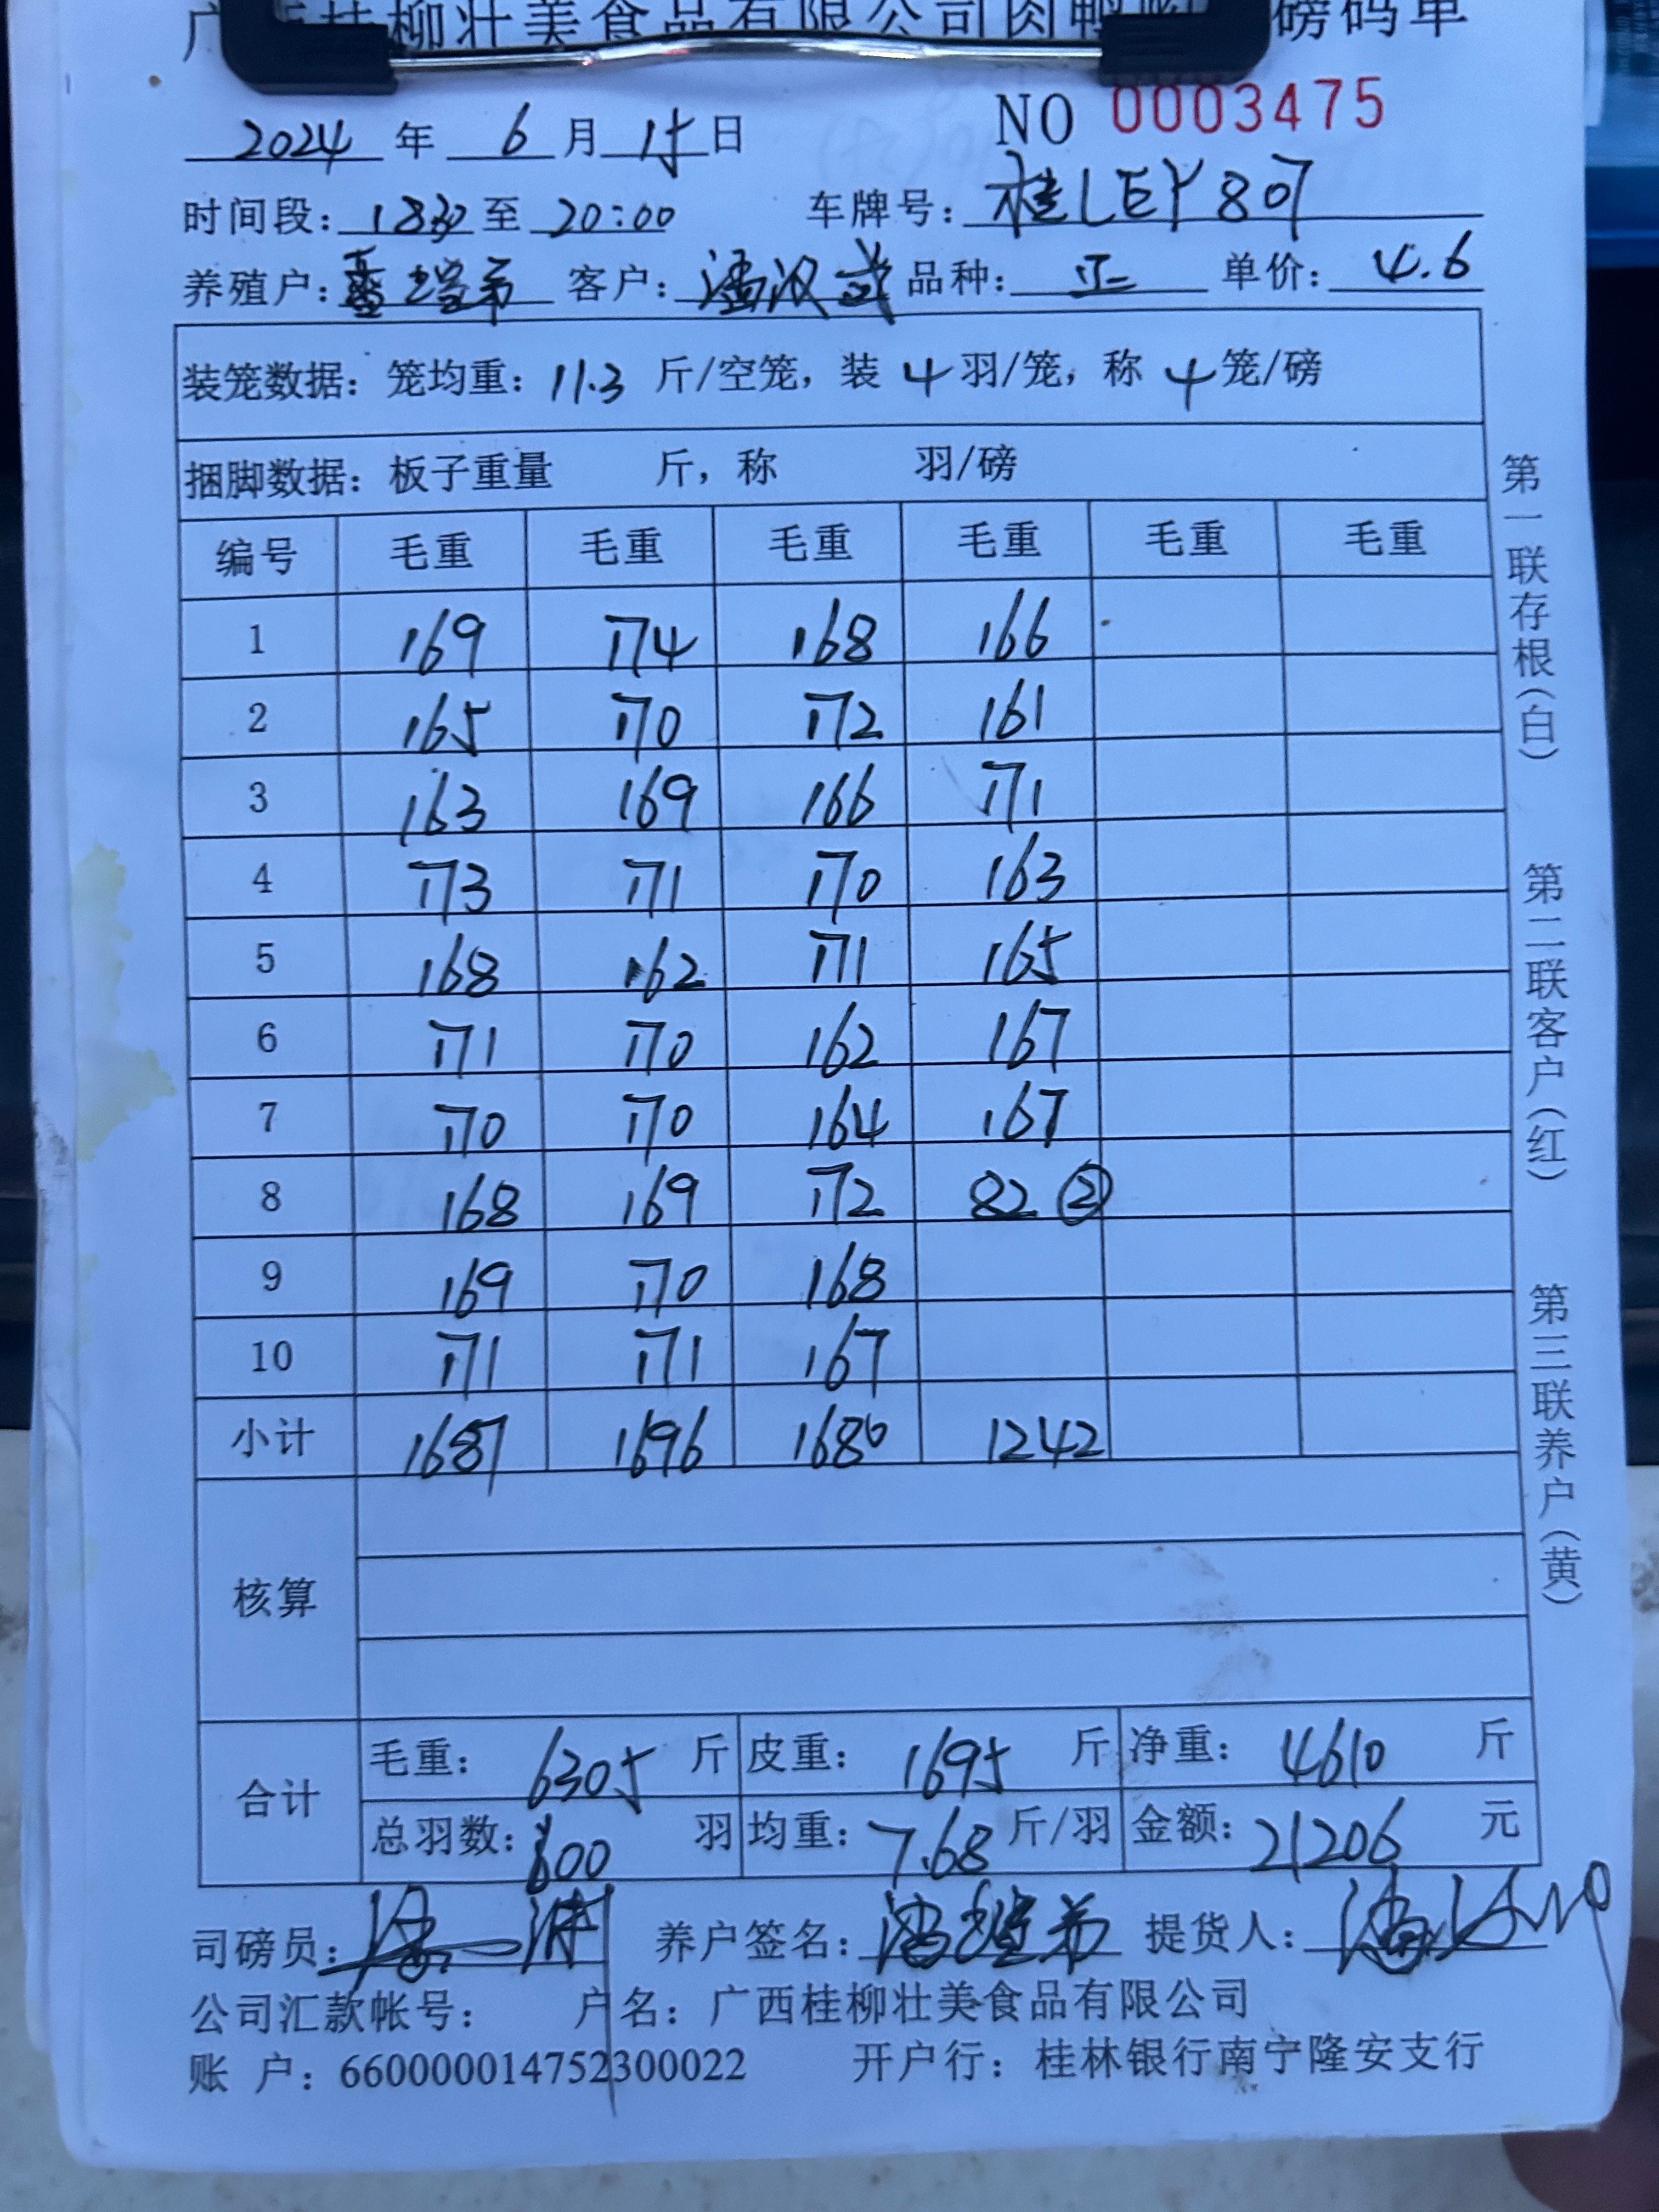 桂柳壮美食品有限公司肉鸭 磅码单
NO 0003475
2024 年 6 月 15 日
时间段: 1830 至 20:00 车牌号: 桂LEY807
养殖户: 客户: 潘汉武 品种: 正 单价: 4.6
装笼数据: 笼均重: 11.3 斤/空笼, 装 4 羽/笼, 称 4 笼/磅
捆脚数据: 板子重量 斤, 称 羽/磅
编号 毛重 毛重 毛重 毛重 毛重 毛重
1 169 174 168 166
2 165 170 172 161
3 163 169 166 171
4 173 171 170 163
5 168 162 171 165
6 171 170 162 167
7 170 170 164 167
8 168 169 172 82 ②
9 169 170 168
10 171 171 167
小计 1687 1696 1680 1242
核算
合计
毛重: 6305 斤 皮重: 1695 斤 净重: 4610 斤
总羽数: 600 羽 均重: 7.68 斤/羽 金额: 21206 元
司磅员: 养户签名: 提货人:
公司汇款帐号: 户名: 广西桂柳壮美食品有限公司
账 户: 660000014752300022 开户行: 桂林银行南宁隆安支行
第一联存根(白) 第二联客户(红) 第三联养户(黄)